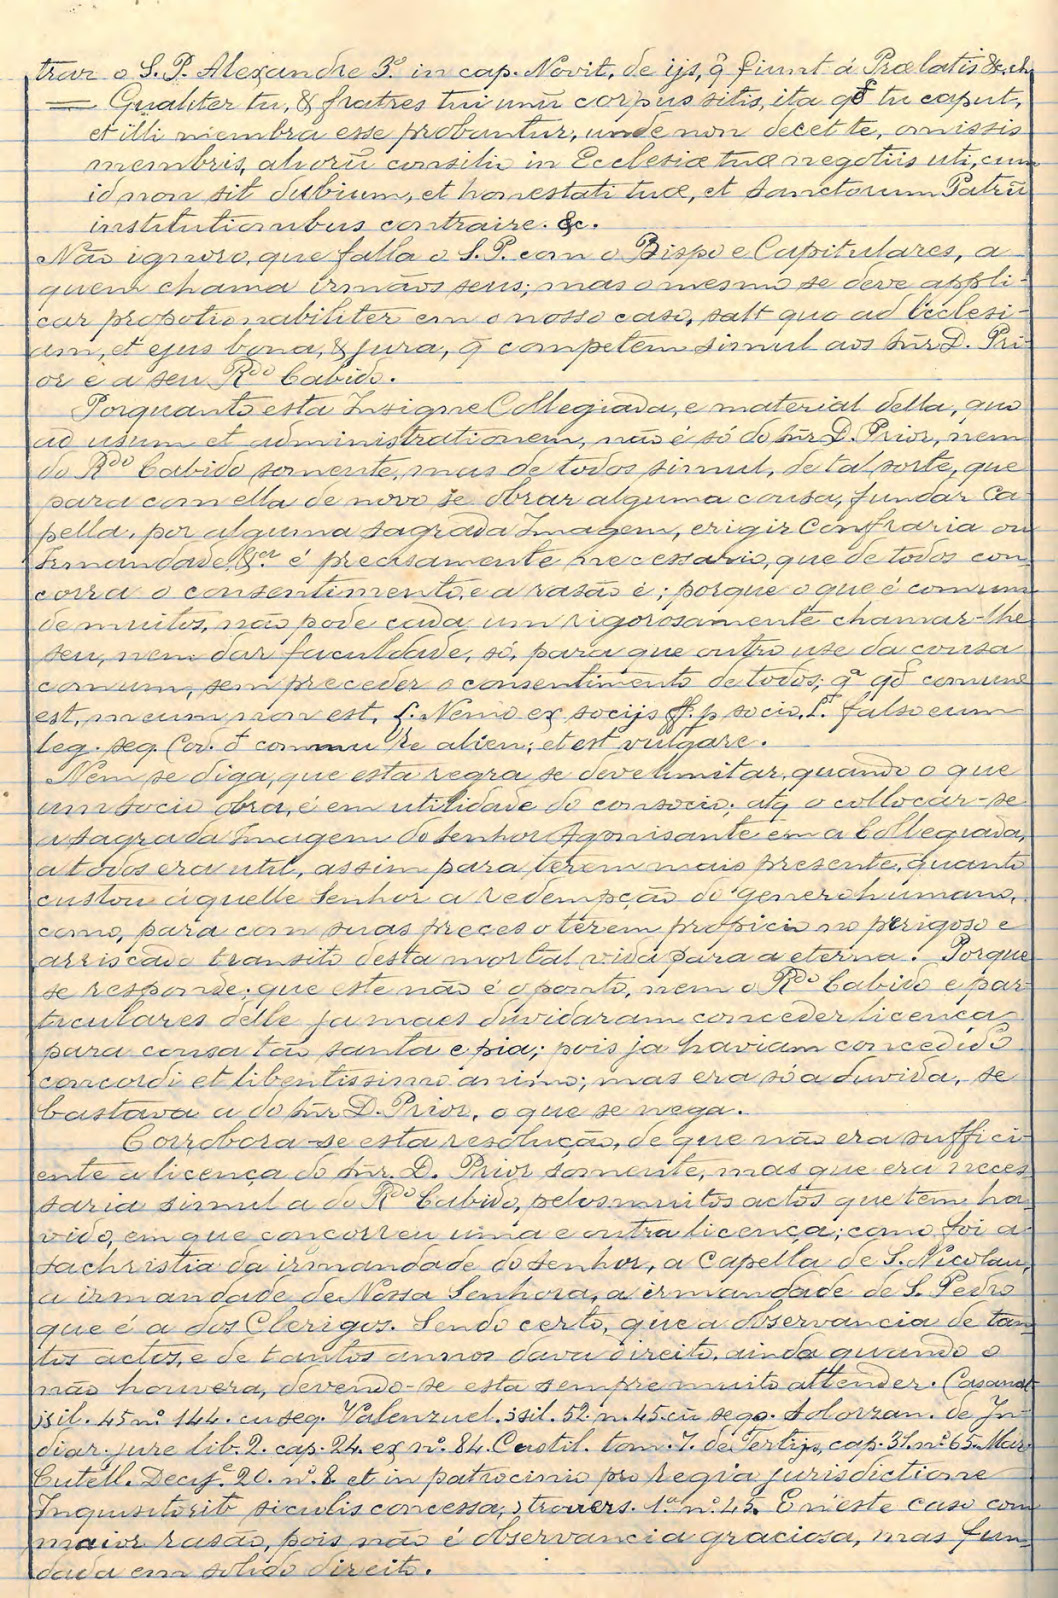 trar o S. P. Alexandre 3.º in cap. Novit, de ijs, q̃ fiunt á Prælatis &c. ch
= Qualiter tu, & fratres tui unũ corpus sitis, ita qđ tu caput,
et illi membra esse probantur, unde non decet te, omissis
membris, aliorũ consilio in Ecclesiæ tuæ negotiis uti, cum
id non sit dubium, et honestati tuæ, et sanctorum Patrũ
institutionibus contraire. &c.
Não ignoro, que falla o S. P. com o Bispo e Capitulares, a
quem chama irmãos seus; mas o mesmo se deve appli-
car proportionabiliter em o nosso caso, salt quo ad Ecclesi-
am, et ejus bona, & jura, q̃ competem simul aos Sñr D. Pri-
or e a seu Rdo Cabido.
Porquanto esta Insigne Collegiada, e material della, quo
ad usum et administrationem, não é só do Sñr D. Prior, nem
do Rdo Cabido somente, mas de todos simul, de tal sorte, que
para com ella de novo se obrar alguma cousa, fundar Ca-
pella, por alguma sagrada Imagem, erigir Confraria ou
Irmandade, &ª. é precisamente necessario, que de todos con-
corra o consentimento, e a rasão é; porque o que é comum
de muitos, não pode cada um rigorosamente chamar-lhe
seu, nem dar faculdade, só, para que outro use da cousa
comum, sem preceder o consentimento de todos; qª qđ comune
est, meum non est, f. Nemo ex socijs ff. p socio, L. falso eum
leg. seq. Cod. đ commu re alien; et est vulgare.
Nem se diga, que esta regra se deve limitar, quando o que
um socio obra, é em utilidade do consocio; atq o collocar-se
a sagrada Imagem do Senhor Agonisante em a Collegiada,
a todos era util, assim para terem mais presente, quanto
custou áquelle Senhor a redempção do genero humano,
como, para com suas preces o terem propicio no perigoso e
arriscado transito desta mortal vida para a eterna. Porque
se responde; que este não é o ponto, nem o Rdo Cabido e par-
ticulares delle ja mais duvidaram conceder licença
para cousa tão santa e pia; pois ja haviam concedido
concordi et libentissimo animo; mas era só a duvida, se
bastava a do Sñr D. Prior, o que se nega.
Corrobora-se esta resolução, de que não era suffici-
ente a licença do Sñr. D. Prior sómente, mas que era neces-
saria simul a do Rdo Cabido, pelos muitos actos que tem ha-
vido, em que concorreu uma e outra licença; como foi a
sachristia da irmandade do Senhor, a Capella de S. Nicolau,
a irmandade de Nossa Senhora, a irmandade de S. Pedro
que é a dos Clerigos. Sendo certo, que a observancia de tan-
tos actos, e de tantos annos dava direito, ainda quando o
não houvera, devendo-se esta sempre muito attender. Casanat
sil. 45 nº 144. cu seq. Valenzuel. sil. 52. n. 45. cũ seqq. Solorzan. de In-
diar. jure lib. 2. cap. 24. ex nº. 84. Castil. tom. 7. de Tertijs, cap. 31. nº 65. Mar
Cutell. Decis. 20. nº. 8 et in patrocinio pro regia jurisdictione
Inquisitorib siculis concessa, trovers. 1.ª nº. 45. E n'este caso com
maior rasão, pois não é observancia graciosa, mas fun-
dada em solido direito.